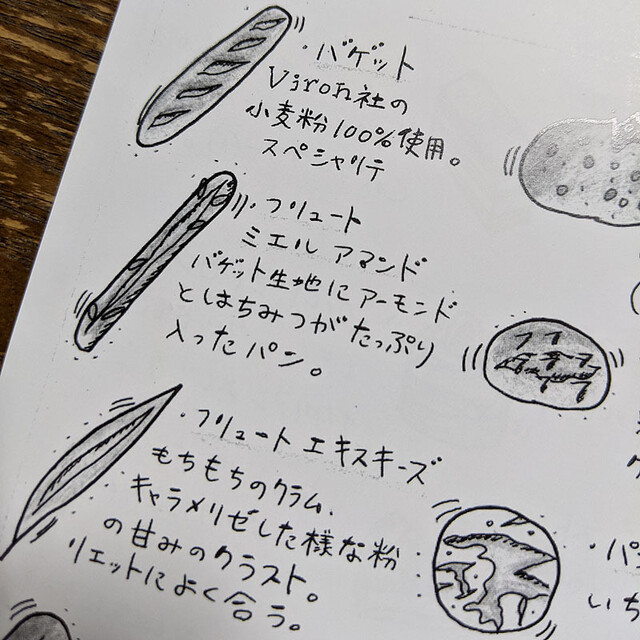 ・バゲット
Viron社の
小麦粉100%使用。
スペシャリテ
・フリュート
ミエル アマンド
バゲット生地にアーモンド
とはちみつがたっぷり
入ったパン。
・フリュート エキスキーズ
もちもちのクラム、
キャラメリゼした様な粉
の甘みのクラスト。
リエットによく合う。
・パ
いち